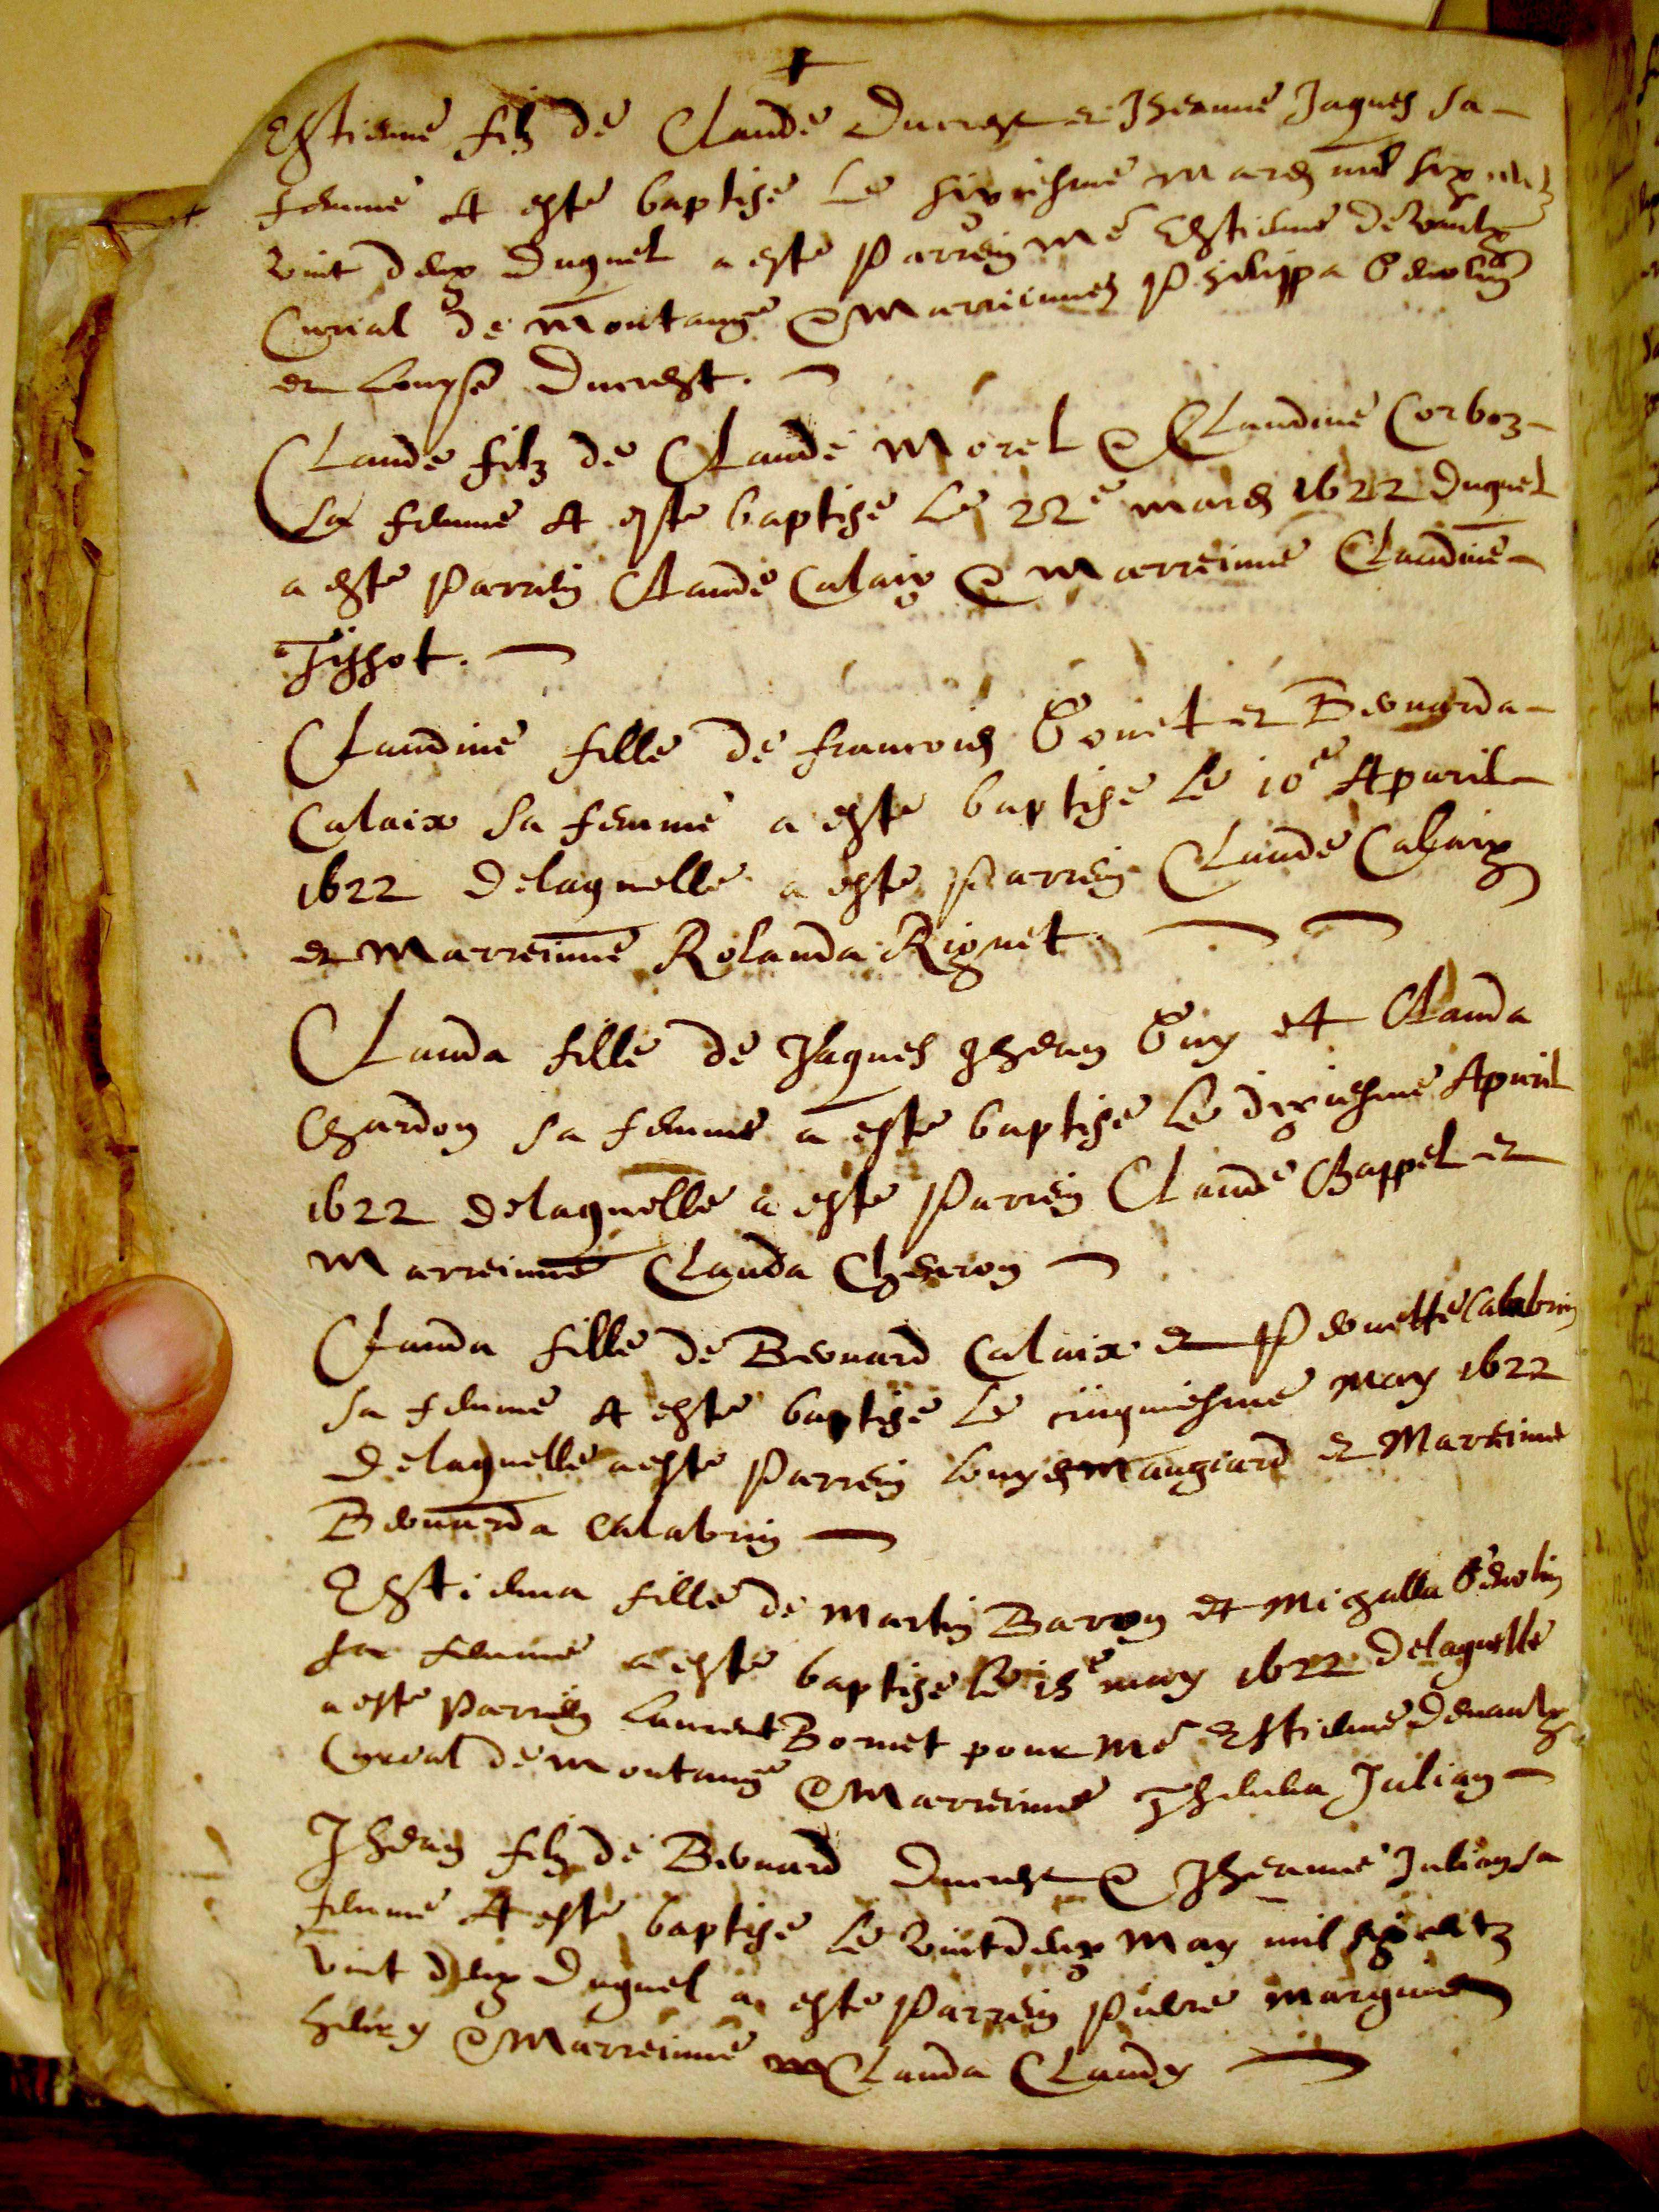 Estienne filz de Claude Ducrest et Jheanne Jaques sa
femme A este baptise le sixiesme mars mil six centz
vint deux Duquel a este Parrein Me Estienne Devaulx
Curial de Montange et Marreinnes Philippa
et Louyse Ducrest.
Claude filz de Claude Morel et Claudine Corboz
sa femme A este baptise le 22e mars 1622 Duquel
a este Parrein Claude Calaix et Marreinne Claudine
Tissot.
Claudine fille de francois Gonet et Bernarda
Calaix sa femme a este baptise le 10e Apvril
1622 Delaquelle a este Parrein Claude Calaix
et Marreinne Rolanda
Clauda fille de Jaques Jhean Guy et Clauda
Chardon sa femme a este baptise le dixiesme Apvril
1622 delaquelle a este Parrein Claude Chappel et
Marreinne Clauda
Clauda fille de Bernard Calaix et Pernette Calabrin
sa femme A este baptise le cinquiesme May 1622
Delaquelle a este Parrein Louys Maugiard et Marreinne
Bernarda Calabrin
Estienna fille de Martin Baron et
sa femme a este baptise le 15e may 1622 Delaquelle
a este Parrein Laurent Bornet pour Me Estienne Devaulx
Curial de Montange et Marreinne Julian
Jhean filz de Bernard Ducrest et Jheanne Julian sa
femme A este baptise le vintdeux May mil six centz
vint deux Duquel a este Parrein Pierre
et Marreinne Clauda Claudy